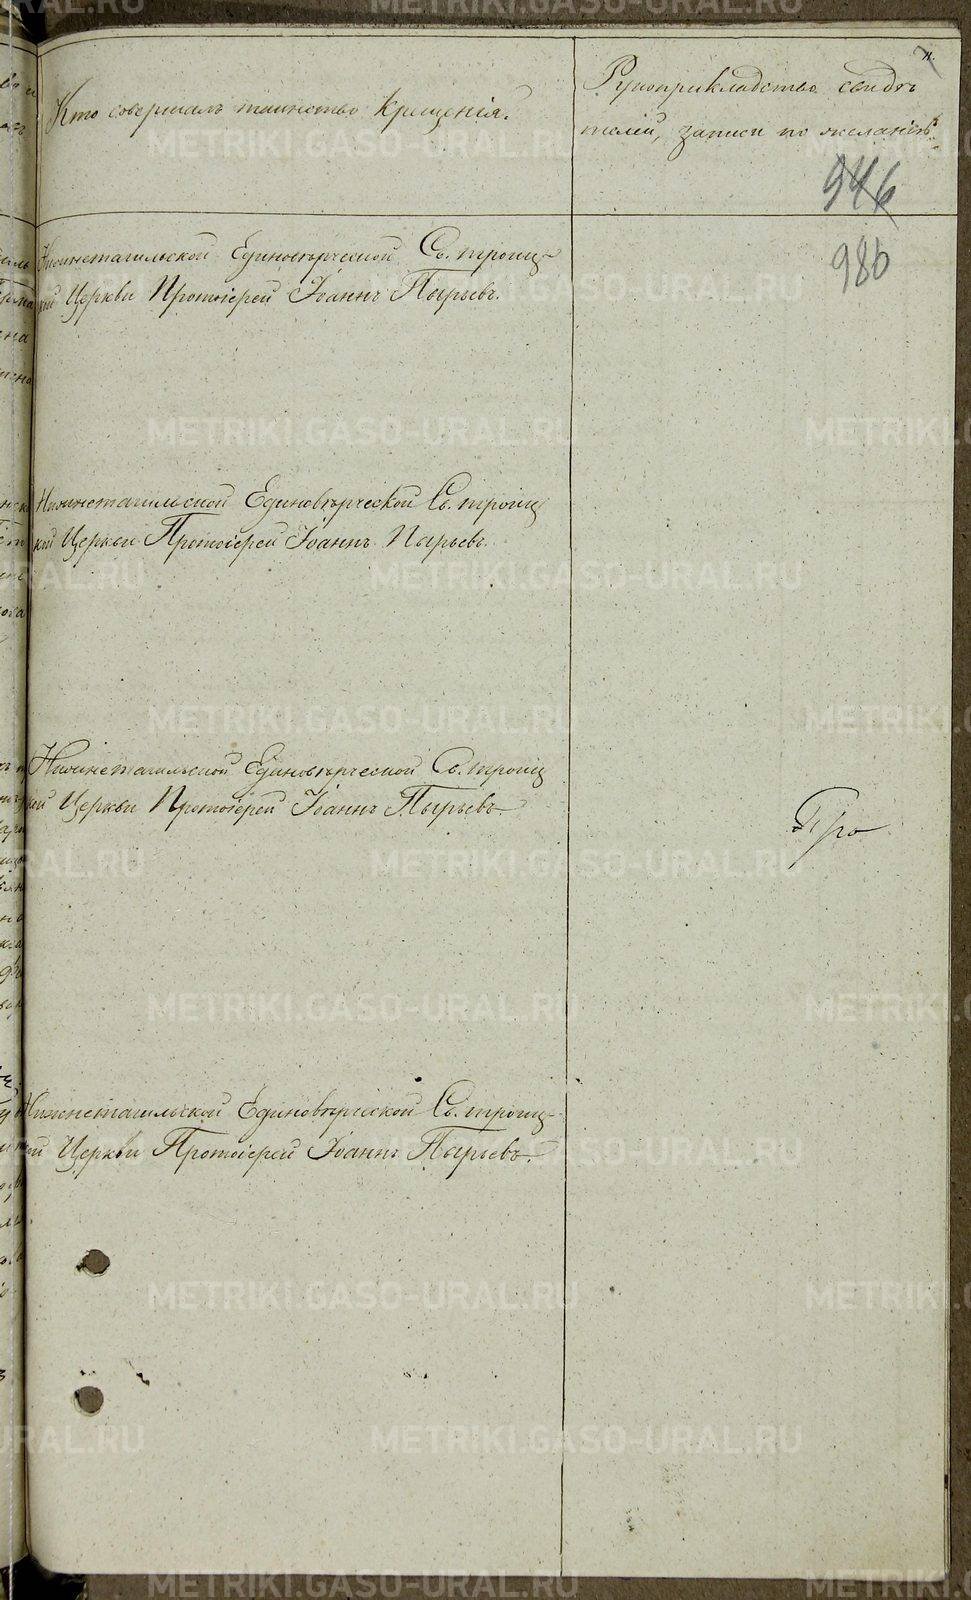 Кто совершалъ таинство Крещенія.
Рукоприкладство свидѣ
телей, записи по желанію.
946
986
Нижнетагильской Единовѣрческой Св. троиц-
кой Церкви Протоіерей Іоаннъ Пырьевъ.
Нижнетагильской Единовѣрческой Св. троиц
кой Церкви Протоіерей Іоаннъ Пырьевъ.
Нижнетагильской Единовѣрческой Св. троиц
кой Церкви Протоіерей Іоаннъ Пырьевъ.
Про
Нижнетагильской Единовѣрческой Св. троиц-
кой Церкви Протоіерей Іоаннъ Пырьевъ.
METRIKI.GASO-URAL.RU